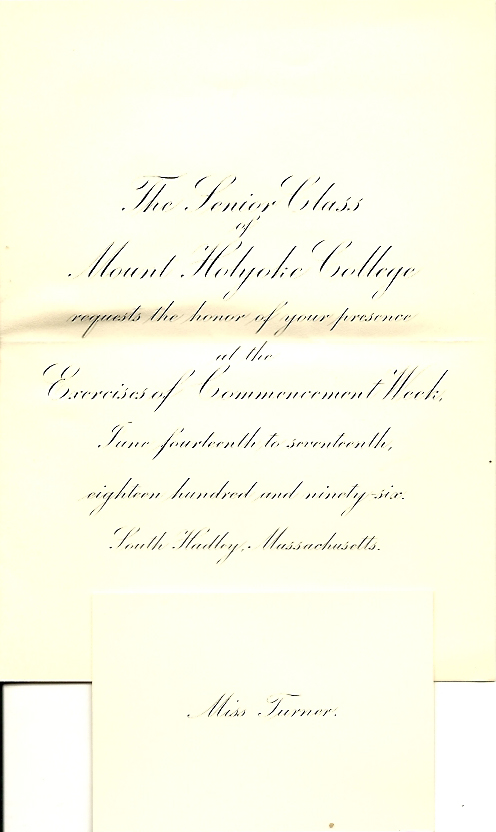 The Senior Class
of
Mount Holyoke College
requests the honor of your presence
at the
Exercises of Commencement Week,
June fourteenth to seventeenth,
eighteen hundred and ninety-six.
South Hadley, Massachusetts.
Miss Turner.